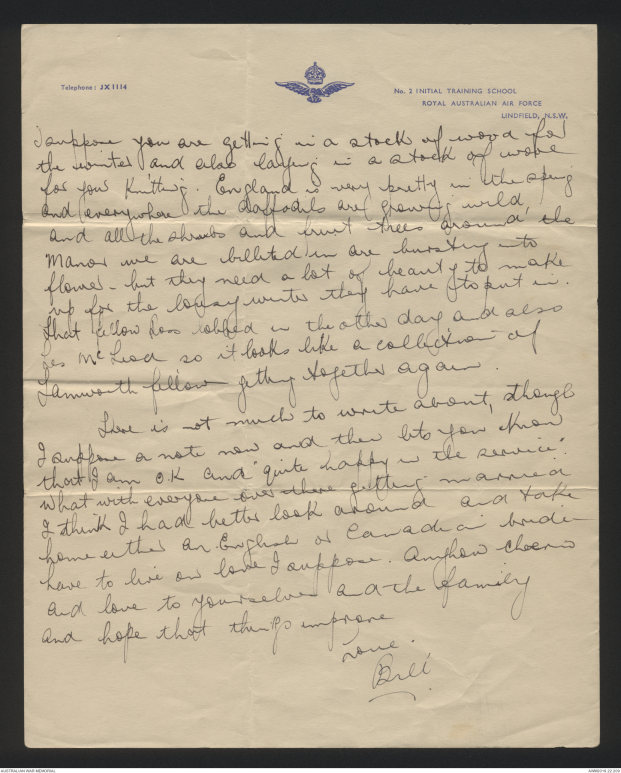 Telephone: JX1114
No. 2 INITIAL TRAINING SCHOOL
ROYAL AUSTRALIAN AIR FORCE
LINDFIELD, N.S.W.
I suppose you are getting in a stock of wood for
the winter and also laying in a stock of wool
for your knitting. England is very pretty in the spring
and everywhere the daffodils are growing wild,
and all the shrubs and fruit trees around the
Manor we are billeted in are bursting into
flower - but they need a lot of beauty to make
up for the lousy winter they have to put in.
That fellow Loss lobbed in the other day and also
Les McLeod so it looks like a collection of
Tamworth fellows getting together again.
There is not much to write about, though
I suppose a note now and then lets you know
that I am O.K and "quite happy in the service".
What with everyone over there getting married
I think I had better look around and take
home either an English or Canadian bride -
have to live on love I suppose. Anyhow cheerio
and love to yourselves and the family
and hope that things improve
Love.
Bill
AUSTRALIAN WAR MEMORIAL